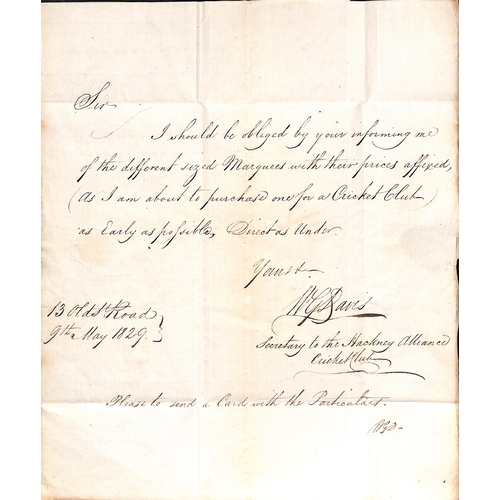 Sir
I should be obliged by your informing me
of the different sized Marquees with their prices affixed,
(As I am about to purchase one for a Cricket Club)
as Early as possible, Direct as Under
Yours &
WG Davis
13 Old St Road
9th May 1829.
Secretary to the Hackney Alliance
Cricket Club
Please to send a Card with the Particulars.
WGD